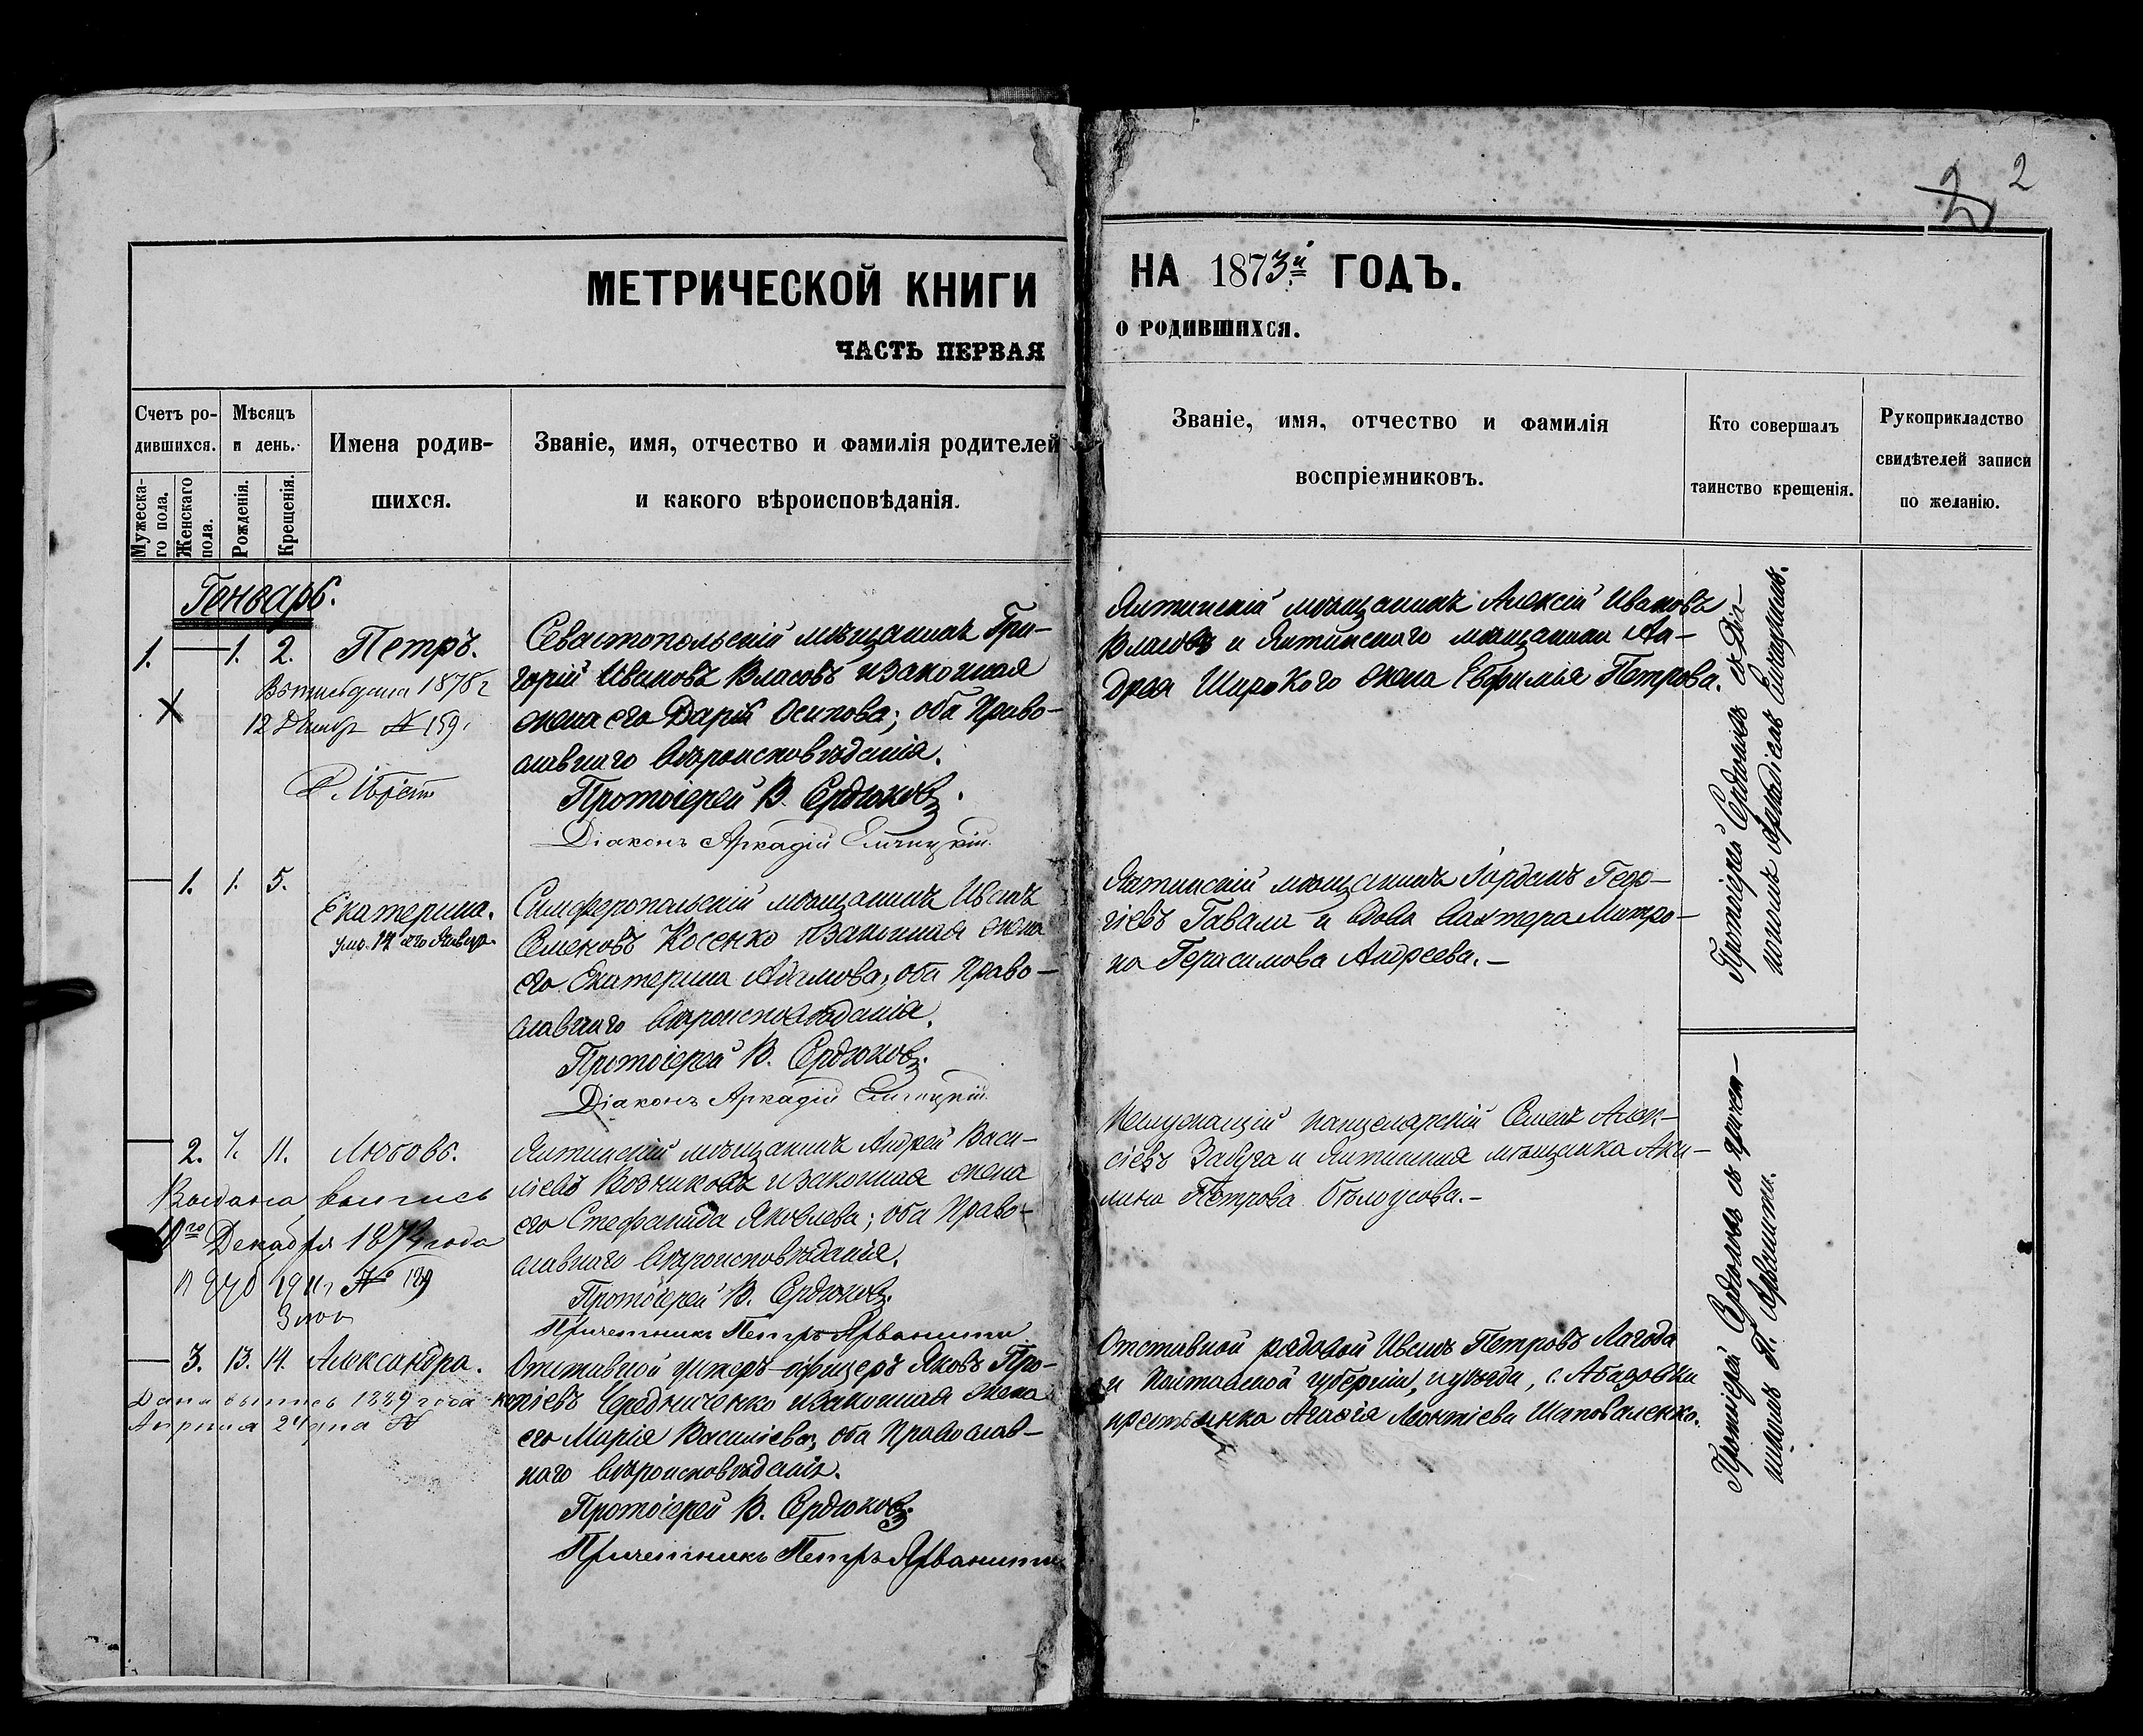 2 2
МЕТРИЧЕСКОЙ КНИГИ НА 1873й ГОДЪ.
ЧАСТЬ ПЕРВАЯ О РОДИВШИХСЯ.
Счетъ ро-
дившихся.
Мужеска-
го пола.
Женскаго
пола.
Мѣсяцъ
и день.
Рожденія.
Крещенія.
Имена родив-
шихся.
Званіе, имя, отчество и фамилія родителей
и какого вѣроисповѣданія.
Званіе, имя, отчество и фамилія
воспріемниковъ.
Кто совершалъ
таинство крещенія.
Рукоприкладство
свидѣтелей записи
по желанію.
Генварь.
1. — 1. 2. Петръ.
1878 г
12 Декабр № 159.
Севастопольскій мѣщанинъ Гри-
горій Ивановъ Власовъ и законная
жена его Дарія Осипова; оба Право-
славнаго вѣроисповѣданія.
Протоіерей В. Сердюковъ.
Діаконъ Аркадій
Ялтинскій мѣщанинъ Алексій Ивановъ
Власовъ и Ялтинскаго мѣщанина Ан-
дрея Широкого жена Евфимья Петрова.
Протоіерей Сердюковъ съ Діа-
кономъ Аркадіемъ
— 1. 1. 5.
Екатерина.
ум. 14 его Январ.
Симферопольскій мѣщанинъ Иванъ
Семеновъ Косенко и законная жена
его Екатерина Адамова; оба Право-
славнаго вѣроисповѣданія.
Протоіерей В. Сердюковъ.
Діаконъ Аркадій
Ялтинскій мѣщанинъ Іорданъ Геор-
гіевъ Гавала и вдова Митро-
на Герасимова Андреева.
— 2. 7. 11. Любовь.
Выдана выпись
10го Декабря 1879 года
№ 129
Ялтинскій мѣщанинъ Андрей Васи-
ліевъ Возниковъ и законная жена
его Стефанида Яковлева; оба Право-
славнаго вѣроисповѣданія.
Протоіерей В. Сердюковъ.
Причетникъ Петръ Арванити
канцелярскій Семенъ Алек-
сіевъ Забуга и Ялтинская мѣщанка Аку-
лина Петрова Бѣлоусова.
Протоіерей Сердюковъ съ причет-
никомъ П. Арванити.
— 3. 13. 14. Александра.
Дана выпись 1889 года
Апрѣля 24 дня №
Отставной унтеръ-офицеръ Яковъ Про-
копіевъ Середниченко и законная жена
его Марія Василіева; оба Православ-
наго вѣроисповѣданія.
Протоіерей В. Сердюковъ.
Причетникъ Петръ Арванити
Отставной рядовой Иванъ Петровъ Лагода
и Полтавской губерніи, и уѣзда, с. Абазовки
крестьянка Агафія Леонтіева Шаповаленко.